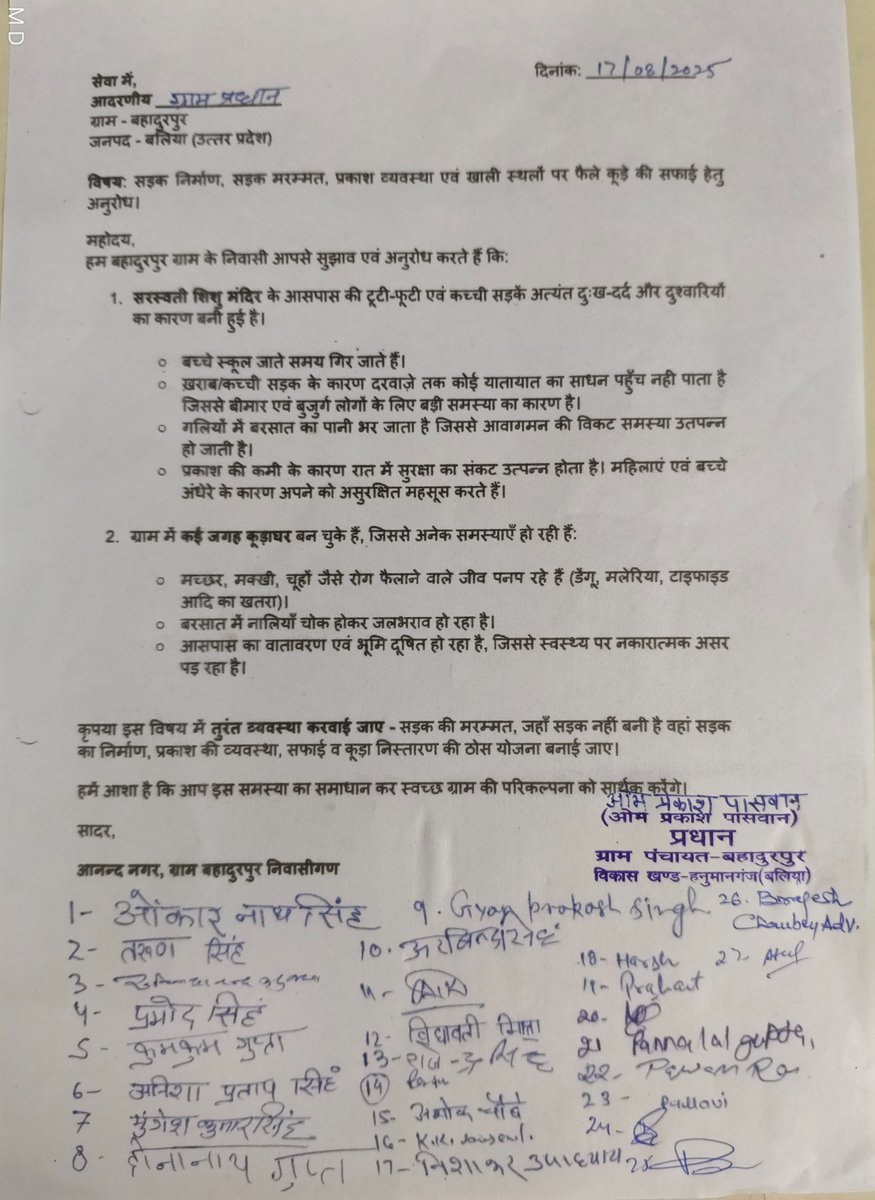 M D
दिनांक: 17/08/2025
सेवा में,
आदरणीय ग्राम प्रधान
ग्राम - बहादुरपुर
जनपद - बलिया (उत्तर प्रदेश)
विषय: सड़क निर्माण, सड़क मरम्मत, प्रकाश व्यवस्था एवं खाली स्थलों पर फैले कूड़े की सफाई हेतु
अनुरोध।
महोदय,
हम बहादुरपुर ग्राम के निवासी आपसे सुझाव एवं अनुरोध करते हैं कि:
1. सरस्वती शिशु मंदिर के आसपास की टूटी-फूटी एवं कच्ची सड़कें अत्यंत दुःख-दर्द और दुश्वारियों
का कारण बनी हुई है।
○ बच्चे स्कूल जाते समय गिर जाते हैं।
○ ख़राब/कच्ची सड़क के कारण दरवाज़े तक कोई यातायात का साधन पहुँच नही पाता है
जिससे बीमार एवं बुजुर्ग लोगों के लिए बड़ी समस्या का कारण है।
○ गलियों में बरसात का पानी भर जाता है जिससे आवागमन की विकट समस्या उतपन्न
हो जाती है।
○ प्रकाश की कमी के कारण रात में सुरक्षा का संकट उत्पन्न होता है। महिलाएं एवं बच्चे
अंधेरे के कारण अपने को असुरक्षित महसूस करते हैं।
2. ग्राम में कई जगह कूड़ाघर बन चुके हैं, जिससे अनेक समस्याएँ हो रही हैं:
○ मच्छर, मक्खी, चूहों जैसे रोग फैलाने वाले जीव पनप रहे हैं (डेंगू, मलेरिया, टाइफाइड
आदि का खतरा)।
○ बरसात में नालियाँ चोक होकर जलभराव हो रहा है।
○ आसपास का वातावरण एवं भूमि दूषित हो रहा है, जिससे स्वस्थ्य पर नकारात्मक असर
पड़ रहा है।
कृपया इस विषय में तुरंत व्यवस्था करवाई जाए - सड़क की मरम्मत, जहाँ सड़क नहीं बनी है वहां सड़क
का निर्माण, प्रकाश की व्यवस्था, सफाई व कूड़ा निस्तारण की ठोस योजना बनाई जाए।
हमें आशा है कि आप इस समस्या का समाधान कर स्वच्छ ग्राम की परिकल्पना को सार्थक करेंगे।
सादर,
ओम प्रकाश पासवान
(ओम प्रकाश पासवान)
प्रधान
ग्राम पंचायत-बहादुरपुर
विकास खण्ड-हनुमानगंज(बलिया)
आनन्द नगर, ग्राम बहादुरपुर निवासीगण
1- ओंकार नाथ सिंह
2- तरुण सिंह
3-
4- प्रमोद सिंह
5- कुमकुम गुप्ता
6- अनिशा प्रताप सिंह
7 मुंगेश कुमार सिंह
8- दीनानाथ गुप्त
9. Gyan prakash Singh
10. अरविन्द सिंह
11-
12- विद्यावती
13-
14
15- अशोक चौबे
16- K.K.
17- निशाकर उपाध्याय
18- Harsh
19-
20-
21 Pannalal gupta,
22- Pawan
23- Pallavi
24-
25
26. Brajesh
Choubey Adv.
27-